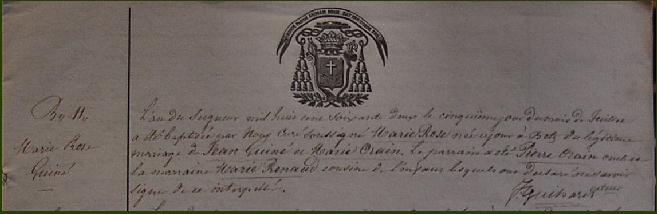 Marie Rose
Guiné
L'an du Seigneur mil huit cent soixante deux le cinquième jour du mois de
a été baptisée par Nous Curé soussigné Marie Rose née ce jour à du légitime
mariage de Jean Guiné et Marie Orain. Le parrain a été Pierre Orain oncle et
la marraine Marie Renaud cousine de l'enfant lesquels ont déclaré ne savoir
signer de ce interpellés.